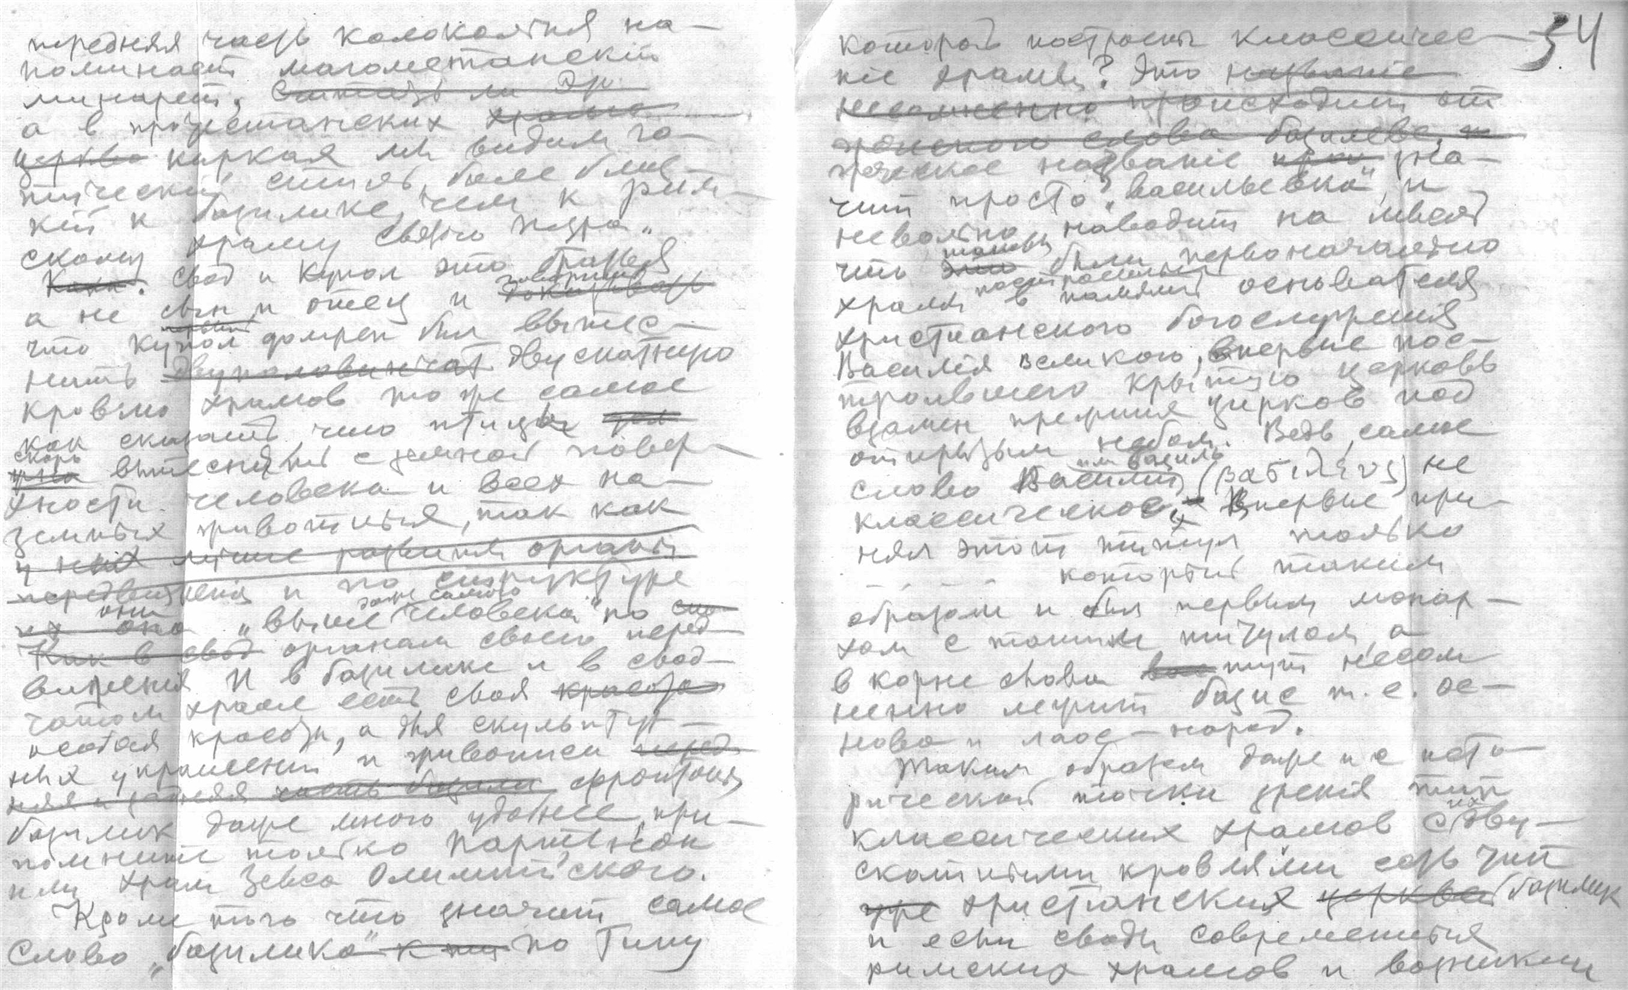 передняя часть колокольня на-
поминает магометанский
минарет,
а в протестанских храмах
кирках мы видим го-
тический стиль, более близ-
кий к базилике, чем к рим-
скому храму святого Петра.
Как. свод и купол это братья
а не сын и отец и
что купол должен был вытес-
нить двускатную
кровлю храмов то же самое
как сказать, что птицы
скоро вытеснят с земной повер-
хности человека и всех на-
земных животных, так как
у них лучше развиты органы
передвижения и по структуре
они „выше даже самого человека" по
Как в свод органам своего перед-
вижения И в базилике и в свод-
чатом храме есть своя красота
особая красота, а для скульптур-
ных украшений и живописи перед-
няя и задняя часть базили фронтоны
базилик даже много удобнее, при-
помните только Партенон
или храм Зевса Олимпийского.
Кроме того что значит самое
слово „базилика" по типу
которой построены классичес-
кие храмы? Это название
несомненно происходит от
слова базилевс, и
греческое название зна-
чит просто „васильевка", и
невольно наводит на мысль
что таковы были первоначально
храмы построенные в память основателя
христианского богослужения
Василия великого, впервые пос-
троившего крытую церковь
взамен прежних цирков под
открытым небом. Ведь, самое
слово Василий или Василь (βασιλεύς) не
классическое, - Впервые при-
нял этот титул только
который таким
образом и был первым монар-
хом с таким титулом, а
в корне слова тут несом
ненно лежит базис т. е. ос-
нова и лаос - народ.
Таким образом даже и с исто-
рической точки зрения тип
классических храмов с их дву-
скатными кровлями есть тип
уже христианских церквей базилик
и если своды современных
римских храмов и возникли
54